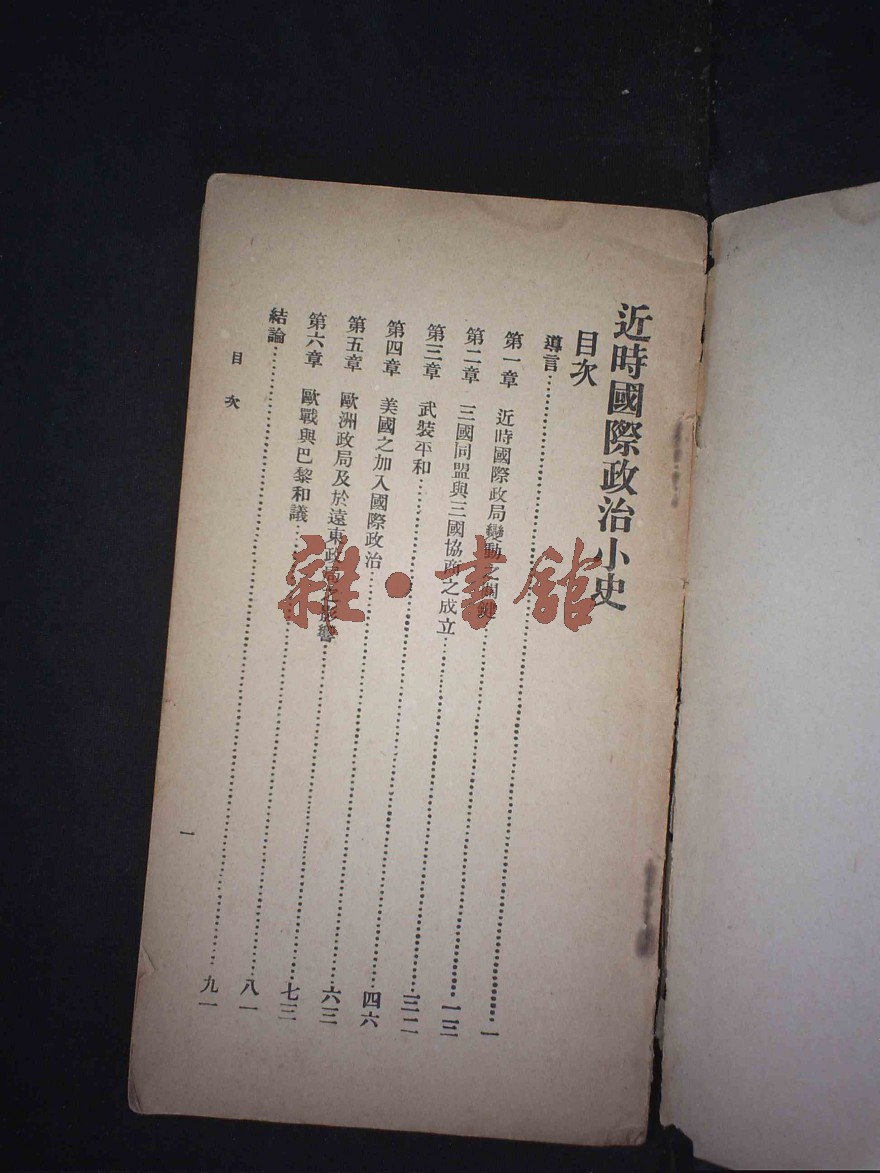 近時國際政治小史
目次
導言……………………一
第一章 近時國際政局變動之關鍵……………………
第二章 三國同盟與三國協商之成立……………………
第三章 武裝平和……………………四六
第四章 美國之加入國際政治……………………六三
第五章 歐洲政局及於遠東政局之影響……………………七三
第六章 歐戰與巴黎和議……………………八一
結論……………………九一
目次
一
雜·書館